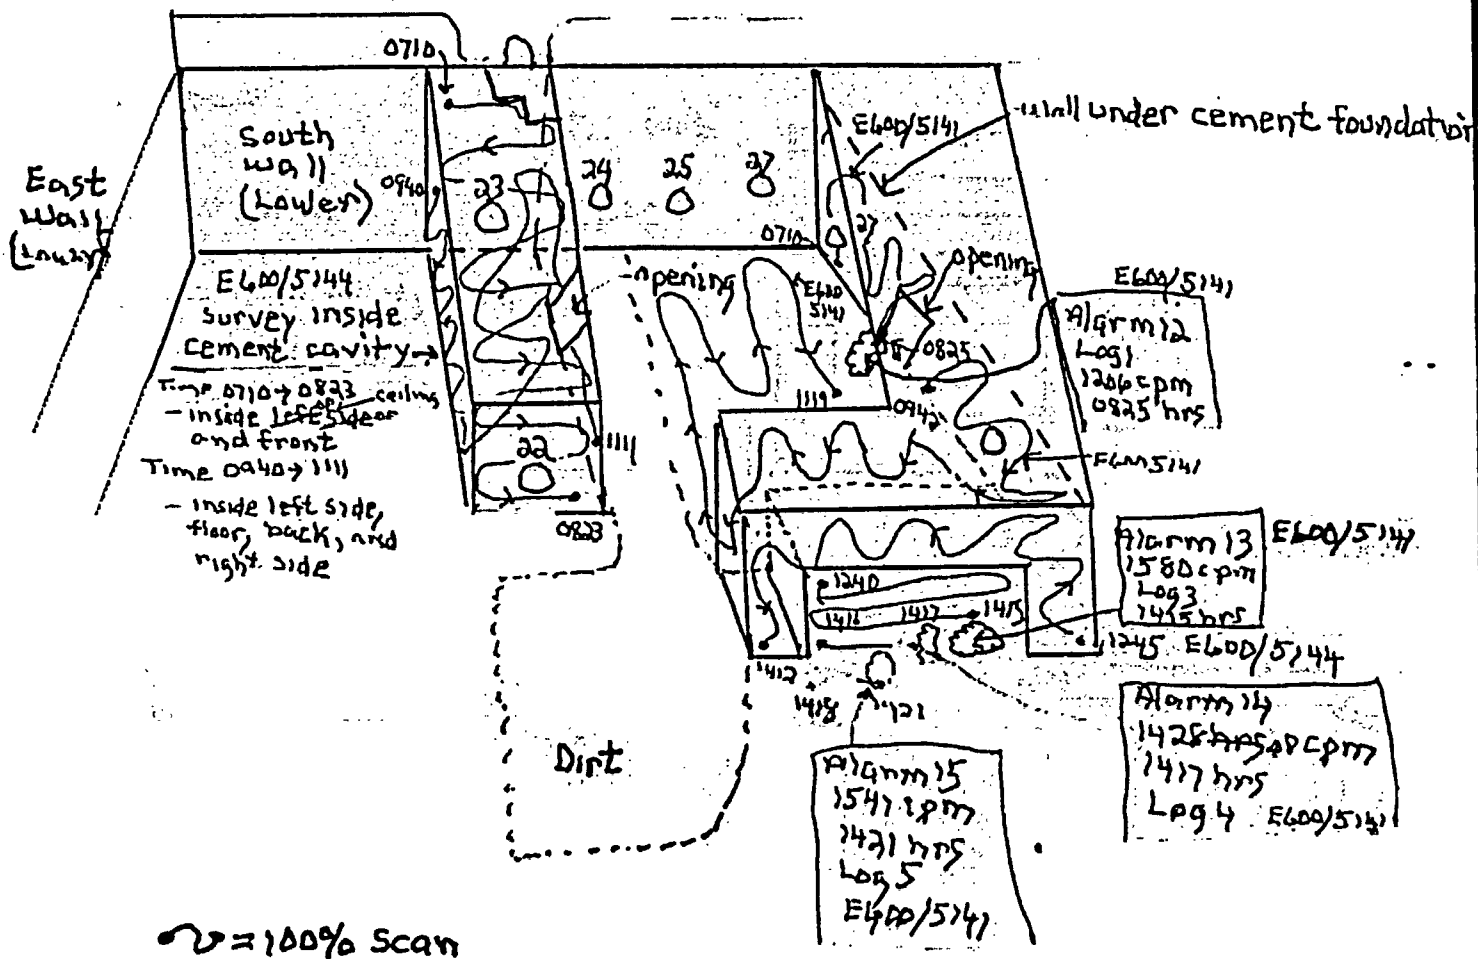 0710
South
wall
(Lower)
East
Wall
0940
23
24
25
27
E600/5141
Wall under cement foundation
27
0710
opening
opening
E600
5141
E600/5144
survey inside
cement cavity
Time 0710→0823
- inside
ceiling
and front
Time 0940→1111
- inside left side,
floor, back, and
right side
22
1111
0823
1119
0825
0942
E600/5141
Alarm 12
Log 1
1206 cpm
0825 hrs
E600/5141
Alarm 13
1580 cpm
Log 3
1415 hrs
E600/5141
1240
1416
1417
1415
1245 E600/5144
1412
1418
1421
Alarm 14
1428 hrs cpm
1417 hrs
Log 4 E600/5141
Alarm 15
1541 cpm
1421 hrs
Log 5
E600/5141
Dirt
= 100% Scan